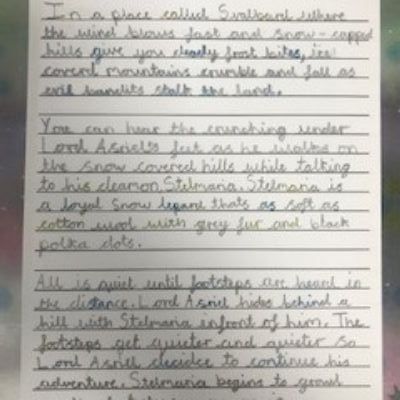 In a place called Svalbard where
the wind blows fast and snow-capped
hills give you deadly frost bites, ice
coverd mountains crumble and fall as
evil bandits stalk the land.
You can hear the crunching under
Lord Asriel's feet as he walks on
the snow covered hills while talking
to his deamon, Stelmaria. Stelmaria is
a loyal snow lepard thats as soft as
cotton wool with grey fur and black
polka dots.
All is quiet until footsteps are heard in
the distance. Lord Asriel hides behind a
hill with Stelmaria infront of him. The
footsteps get quieter and quieter so
Lord Asriel decides to continue his
adventure. Stelmaria begins to growl